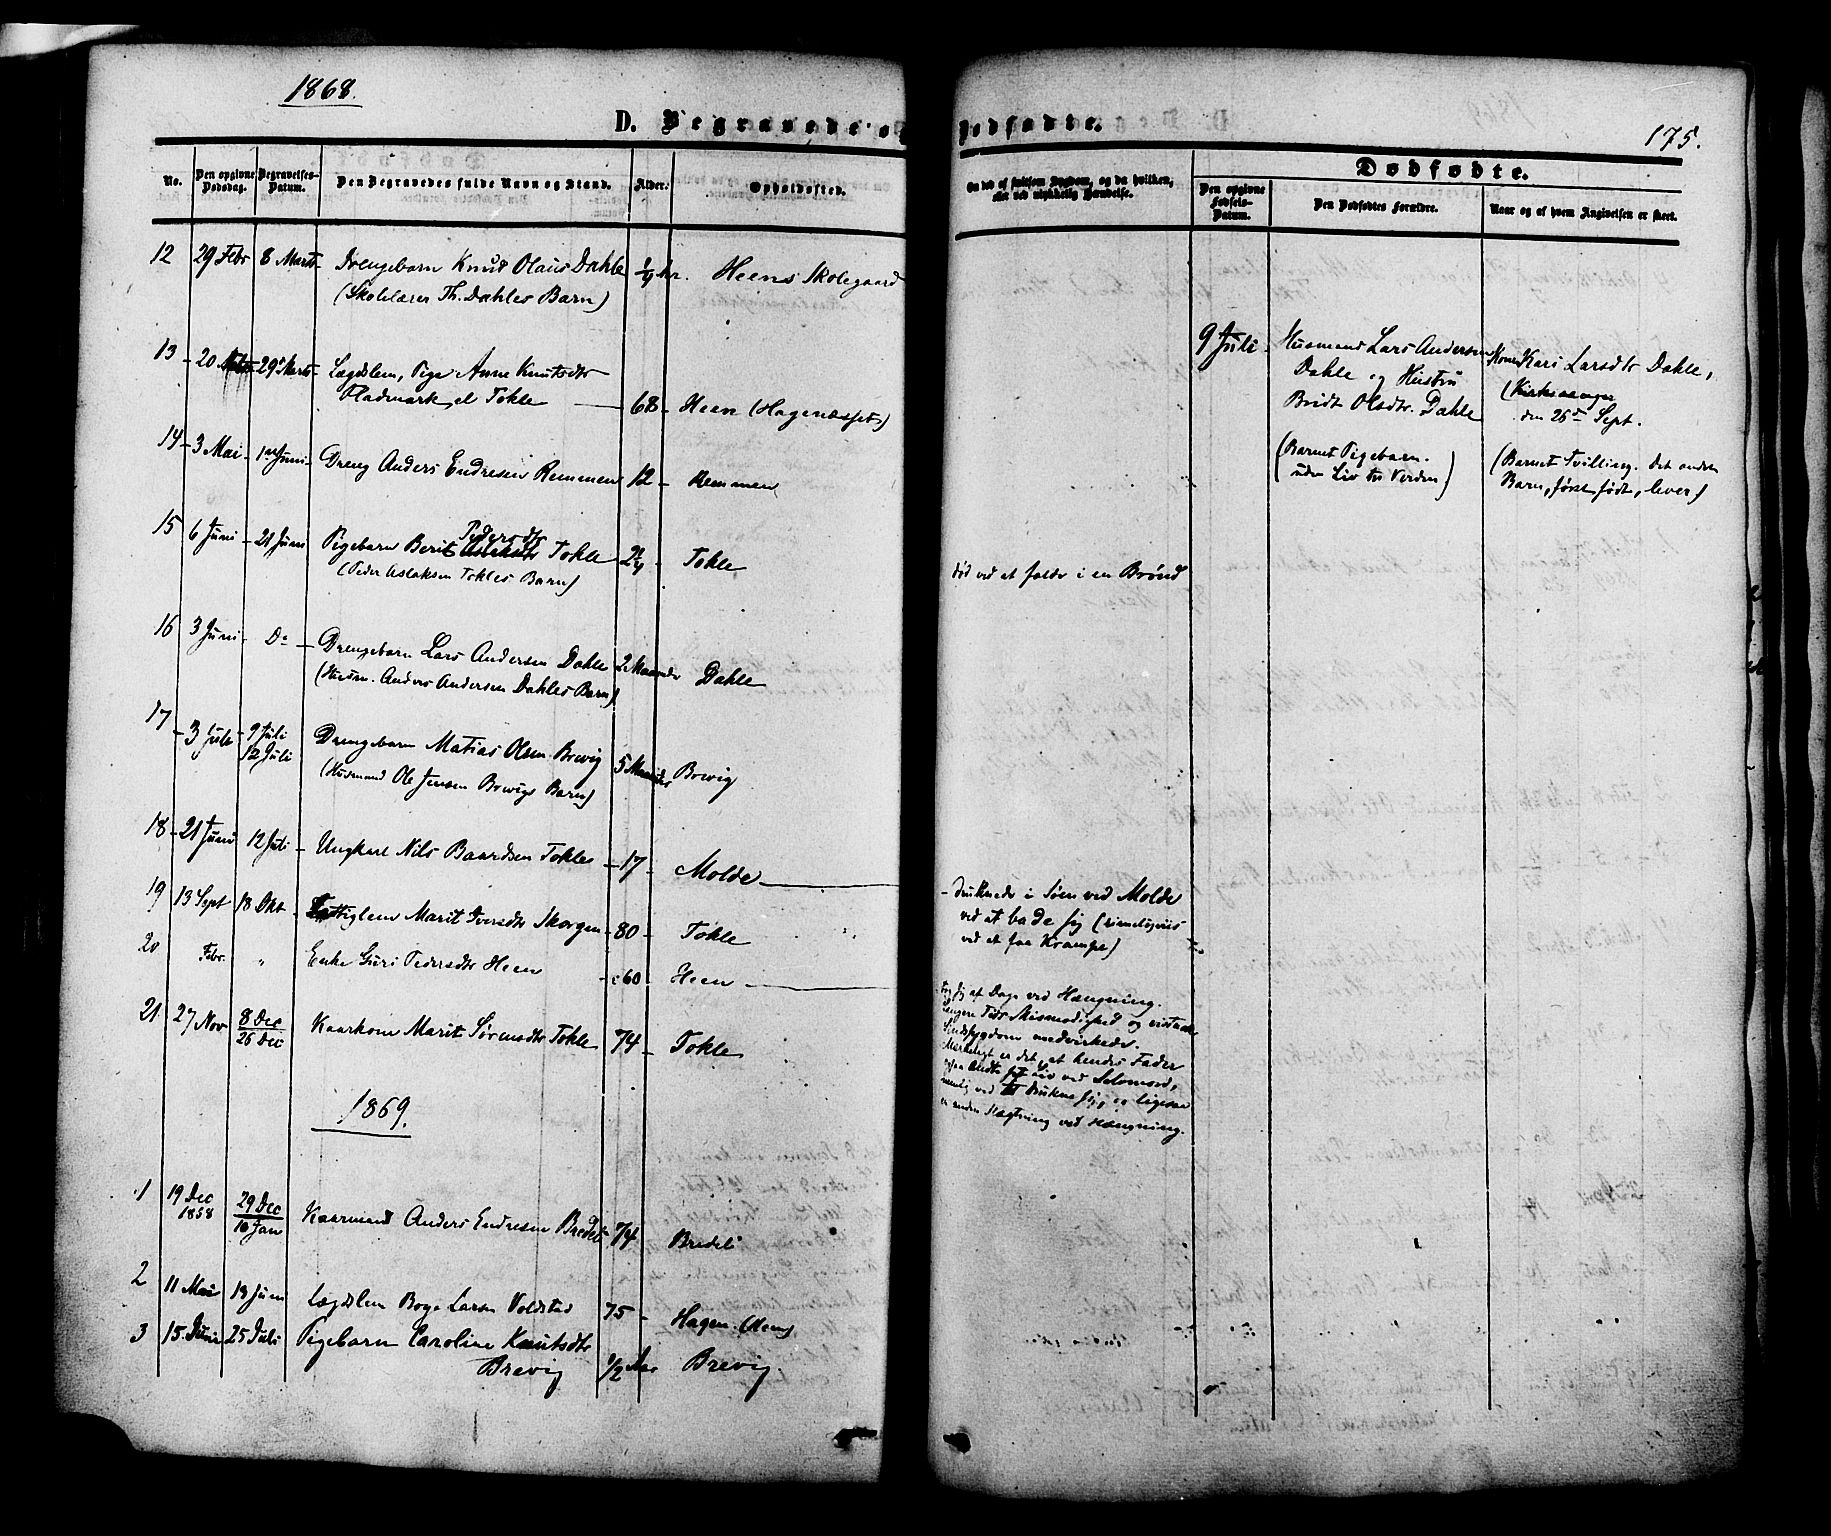 1868.
D. Begravede og Dødfødte.
175.
No.
Den opgivne Dødsdag.
Begravelses-Datum.
Den Begravedes fulde Navn og Stand.
Alder.
Opholdssted.
Om død af smitsom Sygdom, og da hvilken, eller ved ulykkelig Hændelse.
Dødfødte.
Den opgivne Fødsels-Datum.
Den Dødfødtes Forældre.
Naar og af hvem Angivelsen er skeet.
12 29 Febr 8 Marts Drengebarn Knud Olaus Dahle 1/4 Aar. Heens Skolegaard
(Skolelærer Th. Dahles Barn)
13 20 29 Marts Lægdslem, Pige Anne Knutsdtr
Fladmark el Tokle 68 Heen (Hagenæsset)
14 3 Mai 1ste Juni Dreng Anders Endresen Remmen 12 Remmen
15 6 Juni 21 Juni Pigebarn Berit Pedersdtr Tokle 2 1/4 Tokle
(Peder Aslaksen Tokles Barn)
død ved at falde i en Brønd
16 3 Juni Do Drengebarn Lars Andersen Dahle 2 Maaneder Dahle
(Husm. Anders Andersen Dahles Barn)
17 3 Juli 9 Juli
12 Juli Drengebarn Matias Olsen Brevig 5 Maaneder Brevig
(Husmand Ole Jensen Brevigs Barn)
18 21 Juni 12 Juli Ungkarl Nils Baardsen Tokle 17 Molde
druknede i Søen ved Molde
ved at bade sig (rimeligviis
ved at faa Krampe)
19 13 Sept 18 Okt Fattiglem Marit Iversdtr Skorgen 80 Tokle
20 Febr. " Enke Guri Pedersdtr Heen c 60 Heen
21 27 Nov 8 Dec
26 Dec Kaarkone Marit Sørensdtr Tokle 74 Tokle
Tog sig af Dage ved Hængning.
Længere Tids Mismodighed og
Sindssygdom medvirkede.
Mærkeligt er det, at hendes Fader
ogsaa endte sit Liv ved Selvmord,
nemlig ved at drukne sig, og ligesaa
en anden Slægtning ved Hængning.
9 Juli Husmand Lars Andersen
Dahle og Hustru
Bridt Olsdtr. Dahle
(Barnet Pigebarn.
uden Liv til Verden)
Konen Kari Larsdtr Dahle,
(Kirkesanger
den 26de Sept.
(Barnet Tvilling. det andet
Barn, først født, lever)
1869.
1 19 Dec
1858 29 Dec
10 Jan Kaarmand Anders Endresen Bredeli 74 Bredeli
2 11 Mai 13 Juni Lægdslem Boye Larsen Voldstad 75 Hagen (Heen)
3 15 Juni 25 Juli Pigebarn Caroline Knutsdtr
Brevig 1/2 Aar Brevig.